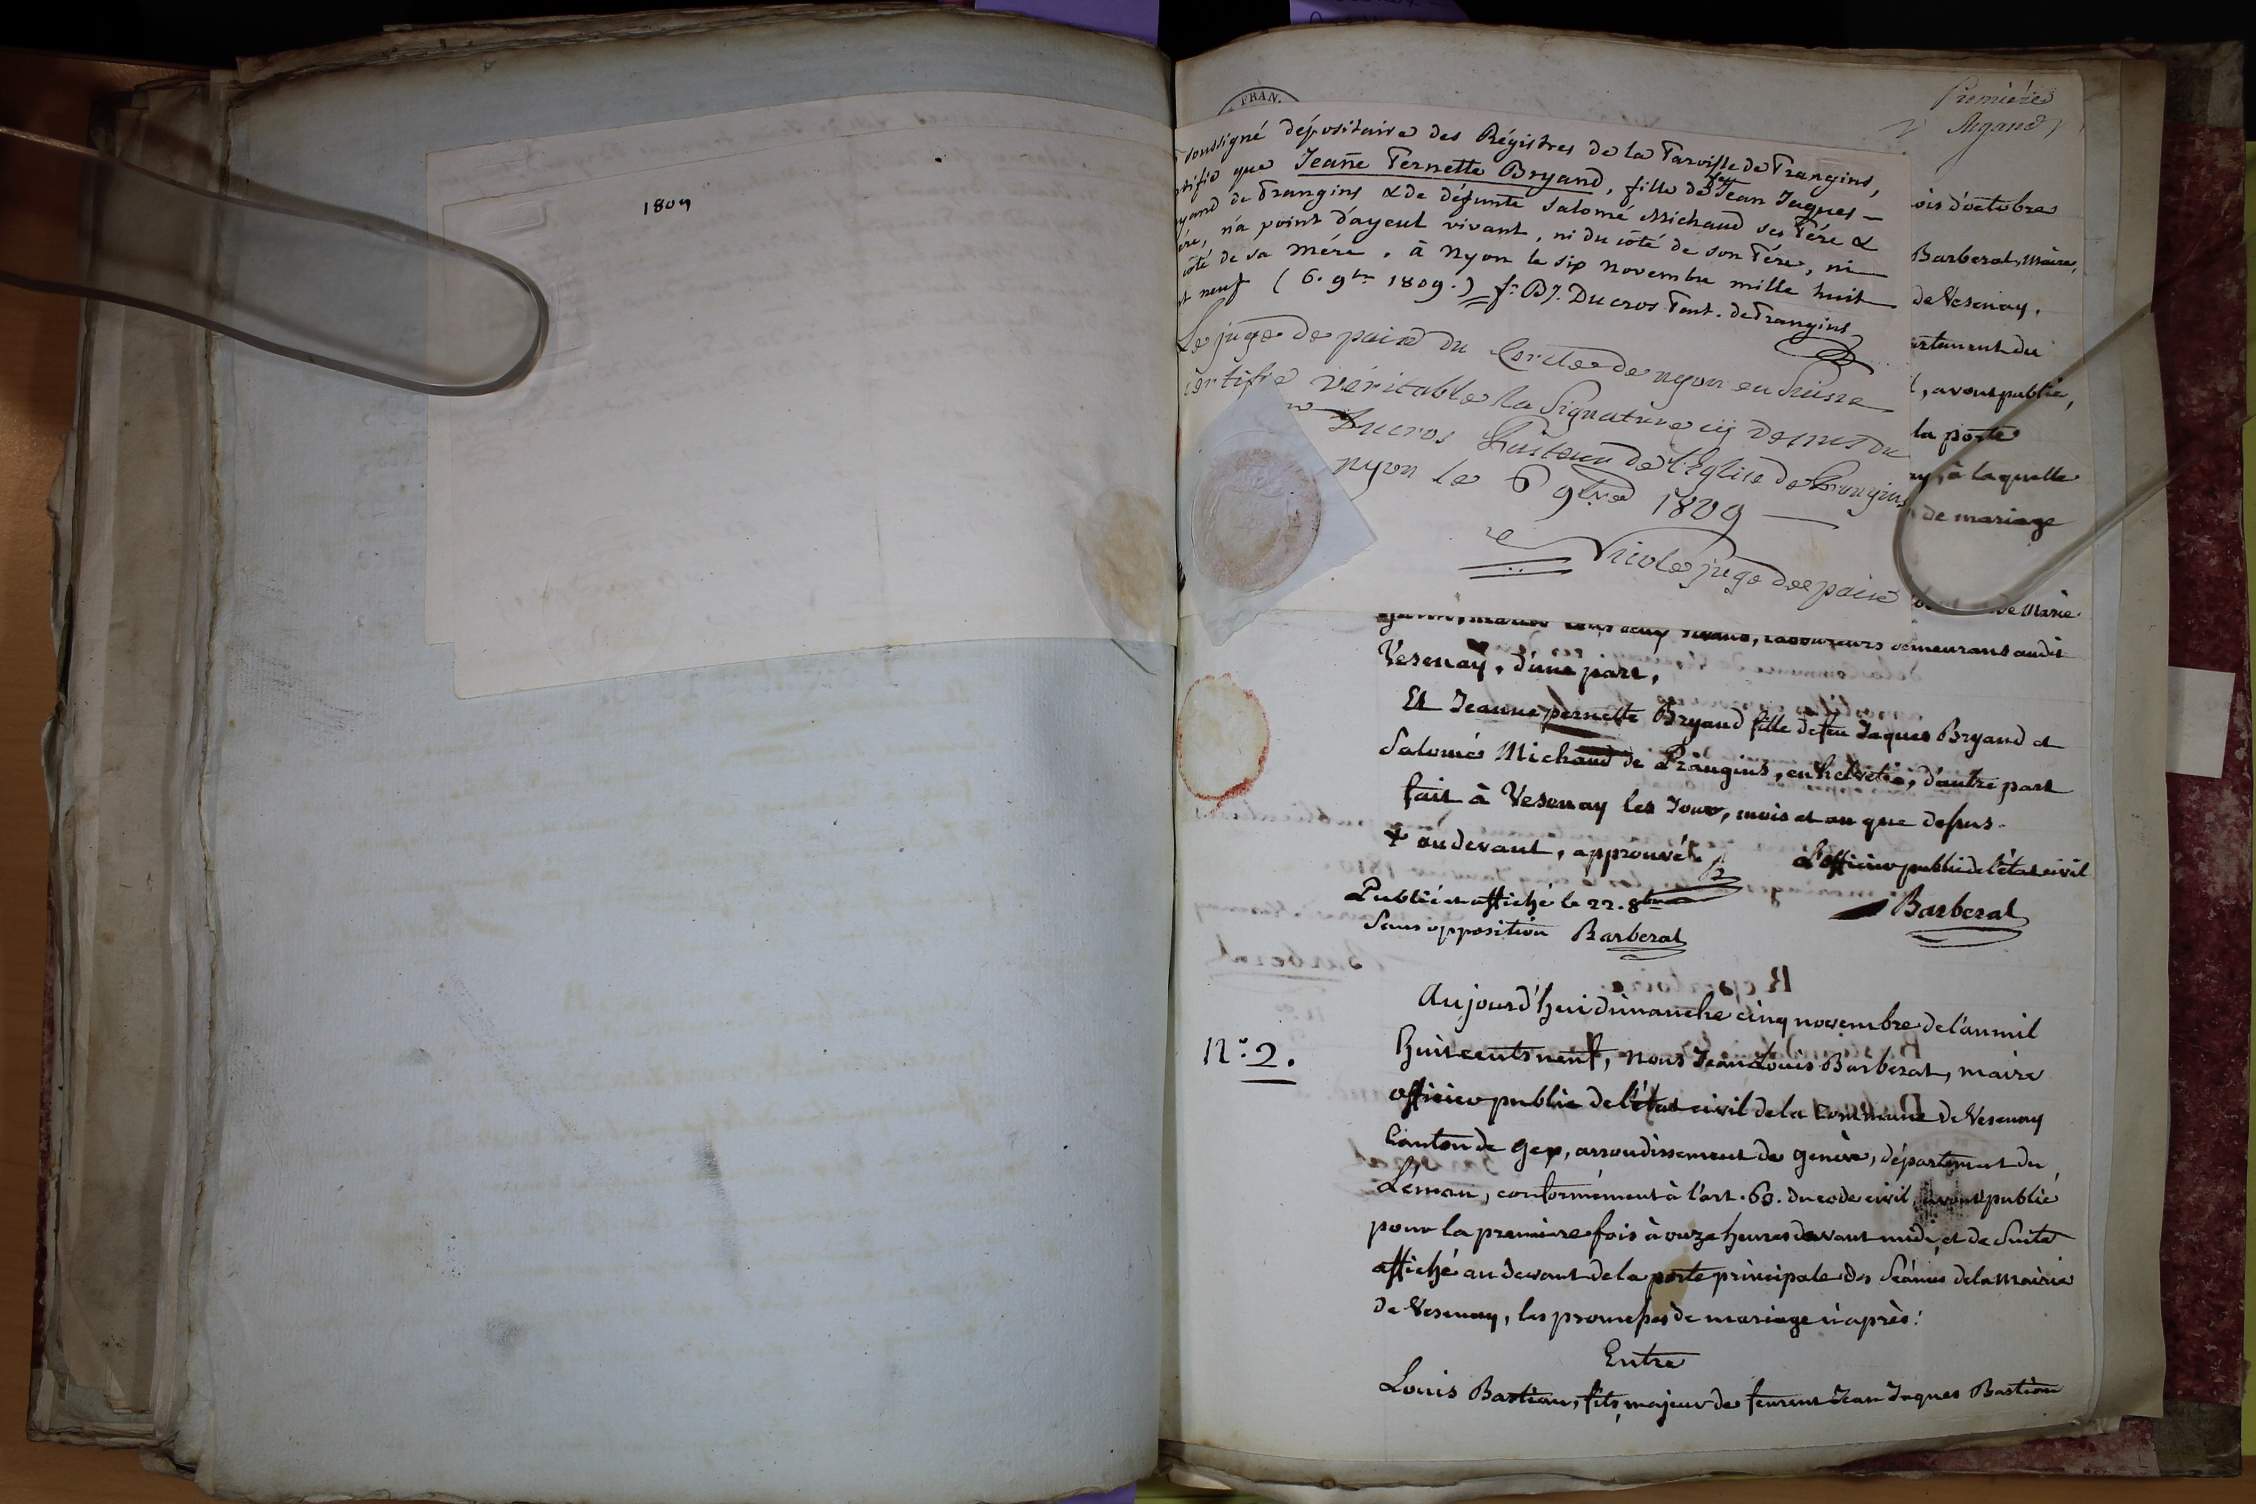 1809
FRAN.
Première
Argand
soussigné dépositaire des Régistres de la Paroisse de Prangins,
certifie que Jeanne Pernette Bryand, fille de feu Jean Jaques
yand de Prangins & de défunte Salomé Michaud ses Père &
ère, n'a point d'ayeul vivant, ni du côté de son Père, ni
côté de sa Mère. à Nyon le six Novembre mille huit
nt neuf (6. 9bre 1809.) Ducros Past. de Prangins
Le juge de paix du Cercle de nyon en Suisse
certifie véritable la Signature cy dessus du
Ducros Pasteur de l'Eglise de Prangins
nyon le 6 9bre 1809
Nicole juge de paix
ois d'octobre
Barberat, Maire,
de Vesenay,
artement du
, avons publié,
la porte
ny, à laquelle
de mariage
de Marie
laboureurs demeurans audit
Vesenay, d'une part,
Et Jeanne pernette Bryand fille de feu Jaques Bryand et
Salomé Michaud de Prangins, en helvétie, d'autre part
fait à Vesenay les Jour, mois et an que dessus.
+ au devant, approuvé
L'officier public de l'état civil
Publié et affiché le 22. 8bre
Barberat
Sans opposition Barberat
N.° 2.
Aujourd'hui dimanche cinq novembre de l'an mil
huit cents neuf, Nous Jean Louis Barberat, maire
officier public de l'état civil de la Commune de Vesenay
Canton de Gex, arrondissement de genève, département du
Léman, conformément à l'art. 63. du code civil, avons publié
pour la premiere fois à onze heures devant midi, et de Suite
affiché au devant de la porte principale des Séances de la Mairie
de Vesenay, les promesses de mariage ci après:
Entre
Louis Bastian, fils majeur de Jean Jaques Bastian